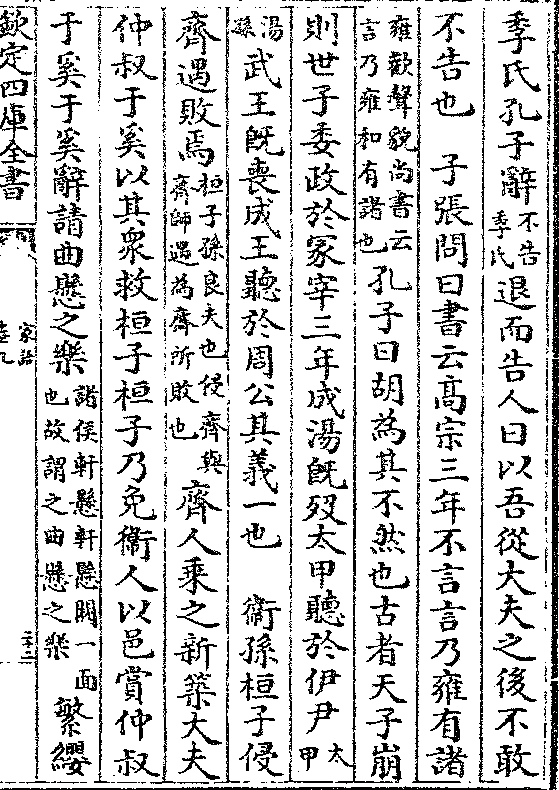 季氏孔子辭不告季氏退而告人曰以吾從大夫之後不敢
不告也　子張問曰書云高宗三年不言言乃雍有諸
雍歡聲貌尚書云言乃雍和有諸也孔子曰胡為其不然也古者天子崩
則世子委政於冢宰三年成湯既歿太甲聽於伊尹太甲
湯孫武王既喪成王聽於周公其義一也　衛孫桓子侵
齊遇敗焉桓子孫良夫也侵齊與齊師遇為齊所敗也齊人乗之新築大夫
仲叔于奚以其衆救桓子桓子乃免衛人以邑賞仲叔
于奚于奚辭請曲懸之樂諸侯軒懸軒懸闕一面也故謂之曲懸之樂繁纓
欽定四庫全書
家語
卷九